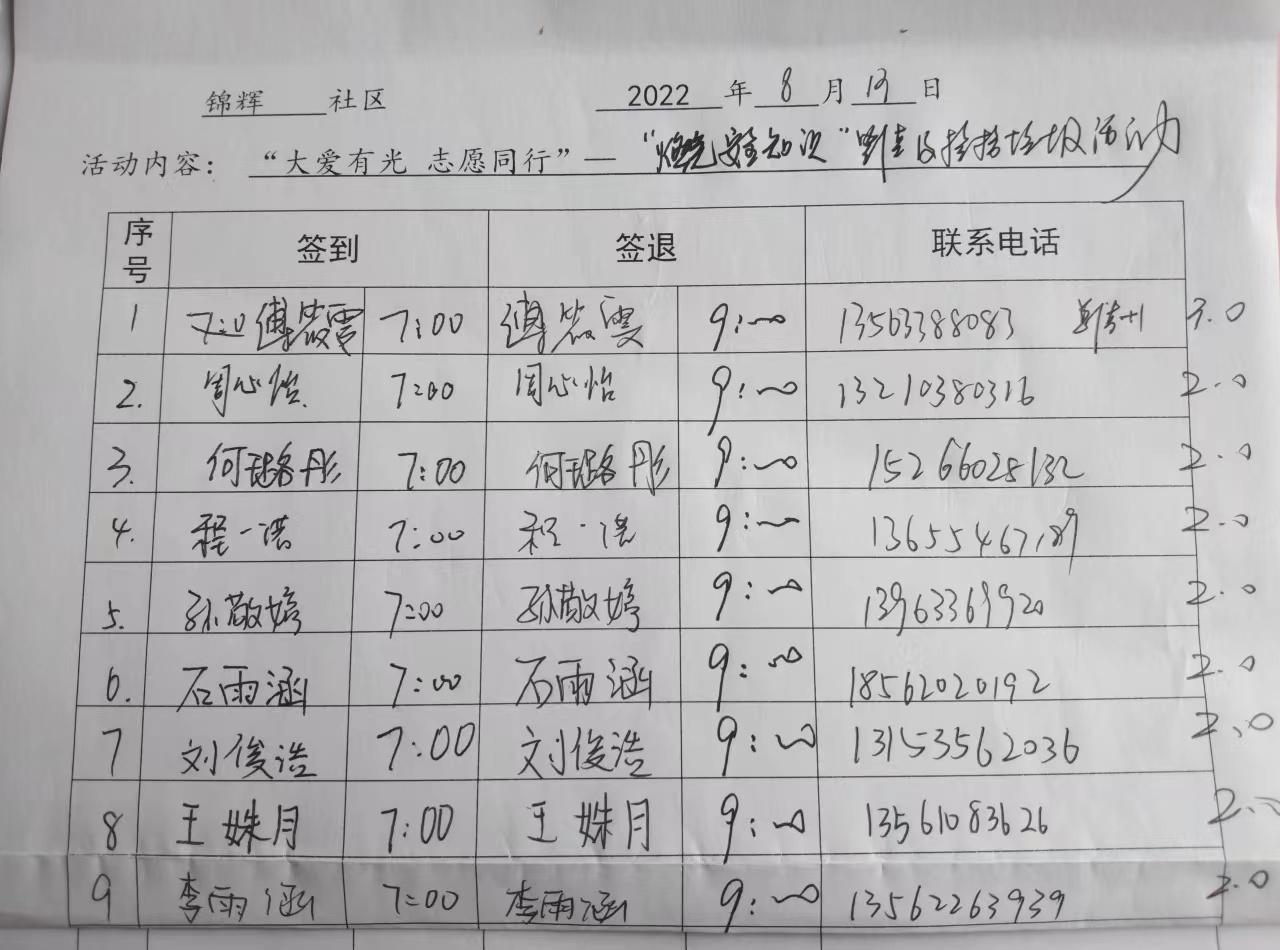 锦辉 社区 2022 年 8 月 13 日
活动内容： “大爱有光 志愿同行”— “燃气安全知识” 及捡拾垃圾活动
序号 签到 签退 联系电话
1 7:00 傅筱雯 7:00 傅筱雯 9:00 13563388083 3.0
2. 周心怡 7:00 周心怡 9:00 13210380316 2.0
3. 何璐彤 7:00 何璐彤 9:00 15266028132 2.0
4. 程一诺 7:00 程一诺 9:00 13655467189 2.0
5. 孙敬婷 7:00 孙敬婷 9:00 13963369920 2.0
6. 石雨涵 7:00 石雨涵 9:00 18562020192 2.0
7 刘俊浩 7:00 刘俊浩 9:00 13153562036 2.0
8 王姝月 7:00 王姝月 9:00 13561083626 2.0
9 李雨涵 7:00 李雨涵 9:00 13562263939 2.0